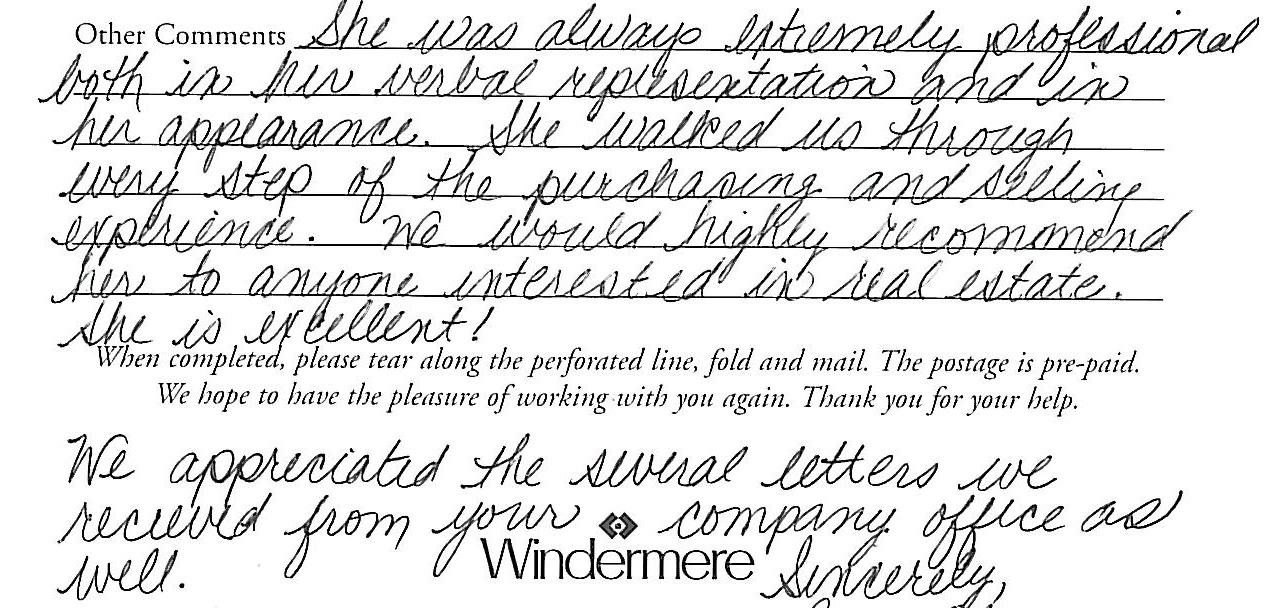 Other Comments She was always extremely professional
both in her verbal representation and in
her appearance. She walked us through
every step of the purchasing and selling
experience. We would highly recommend
her to anyone interested in real estate.
She is excellent!
When completed, please tear along the perforated line, fold and mail. The postage is pre-paid.
We hope to have the pleasure of working with you again. Thank you for your help.
We appreciated the several letters we
recieved from your company office as
well.
Windermere
Sincerely,